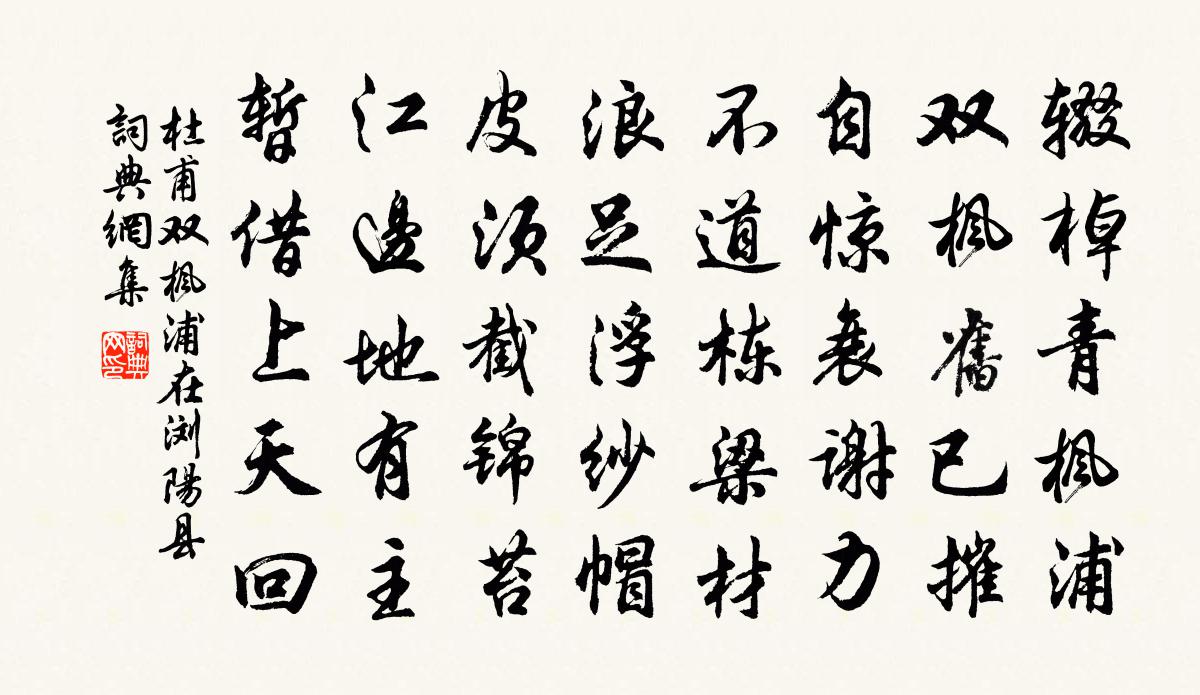 辍棹青枫浦
双枫舊已摧
自惊衰谢力
不道栋梁材
浪足浮纱帽
皮须截锦苔
江邊地有主
暫借上天回
杜甫双枫浦在浏陽县
詞典網集
詞典网印